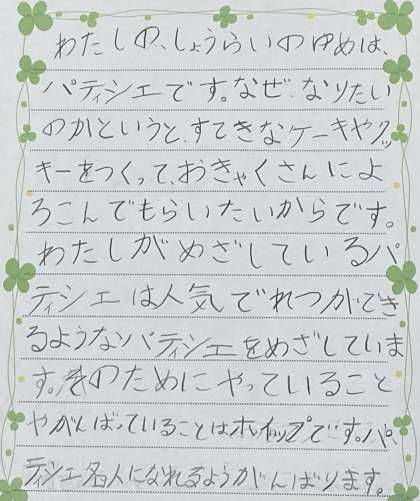 わたしの、しょうらいのゆめは、
パティシエです。なぜ、なりたい
のかというと、すてきなケーキやクッ
キーをつくって、おきゃくさんによ
ろこんでもらいたいからです。
わたしがめざしているパ
ティシエは人気でれつができ
るようなパティシエをめざしていま
す。そのためにやっていること
やがんばっていることはホイップです。パ
ティシエ名人になれるようがんばります。